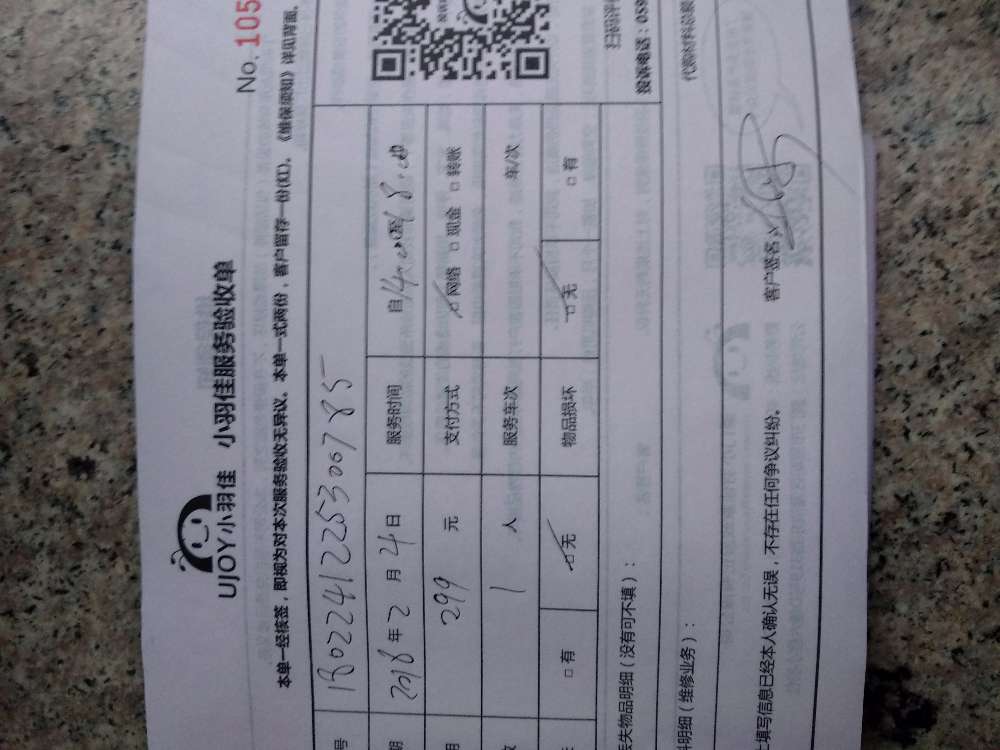 No.105
UJOY小羽佳 小羽佳服务验收单
本单一经核签，即视为对本次服务验收无异议。本单一式两份，客户留存一份(红)。《维保须知》详见背面。
号 180224122530678 5
期 2018年2月4日 服务时间 自14:00至18:00
用 299 元 支付方式 ☑网络 □现金 □转账
数 1 人 服务车次 车/次
□有 ☑无 物品损坏 ☑无 □有
丢失物品明细（没有可不填）：
扫码评价
投诉电话：059
料明细（维修业务）：
代购材料总额
上填写信息已经本人确认无误，不存在任何争议纠纷。 客户签名：